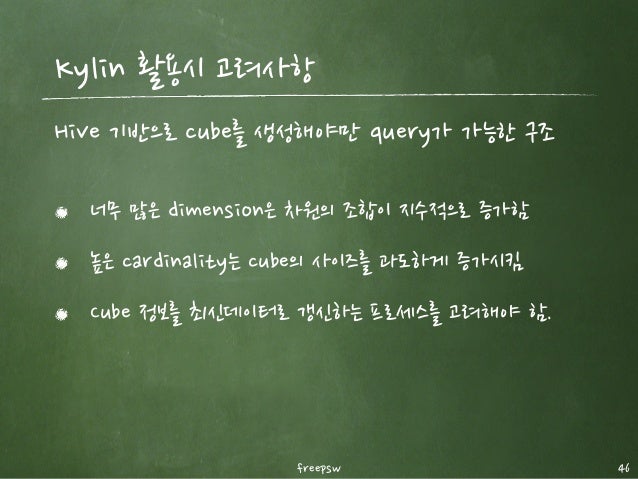 Kylin 활용시 고려사항
Hive 기반으로 cube를 생성해야만 query가 가능한 구조
너무 많은 dimension은 차원의 조합이 지수적으로 증가함
높은 cardinality는 cube의 사이즈를 과도하게 증가시킴
cube 정보를 최신데이터로 갱신하는 프로세스를 고려해야 함.
freepsw
46